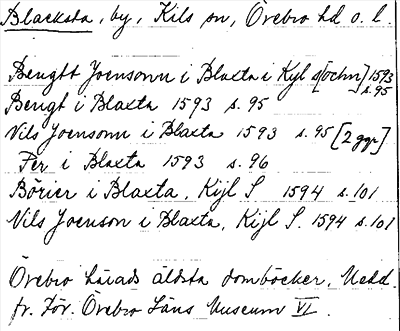 Blacksta, by, Kils sn, Örebro hd o. l.
Bengtt Joensonn i Blaxta i Kyl s[ochn] 1593 s. 95
Bengt i Blaxta 1593 s. 95
Nils Joensonn i Blaxta 1593 s. 95 [2 ggr]
Per i Blaxta 1593 s. 96
Börier i Blaxta, Kijl S 1594 s. 101
Nils Joenson i Blaxta, Kijl S. 1594 s. 101
Örebro härads äldsta domböcker, Medd.
fr. För. Örebro Läns Museum VI.